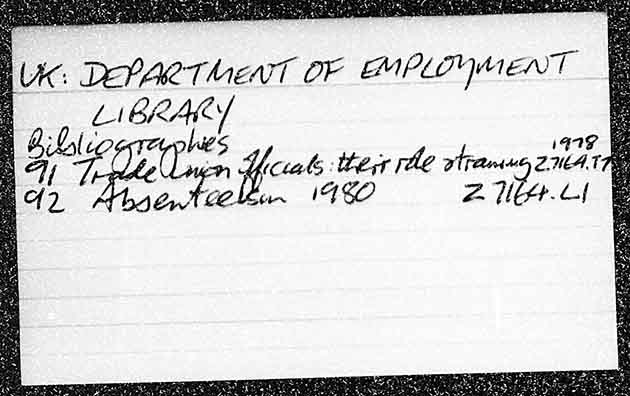 UK: DEPARTMENT OF EMPLOYMENT
LIBRARY
Bibliographies
91 Trade Union officials: their role & training 1978 Z7164.T7
92 Absenteeism 1980 Z7164.L1